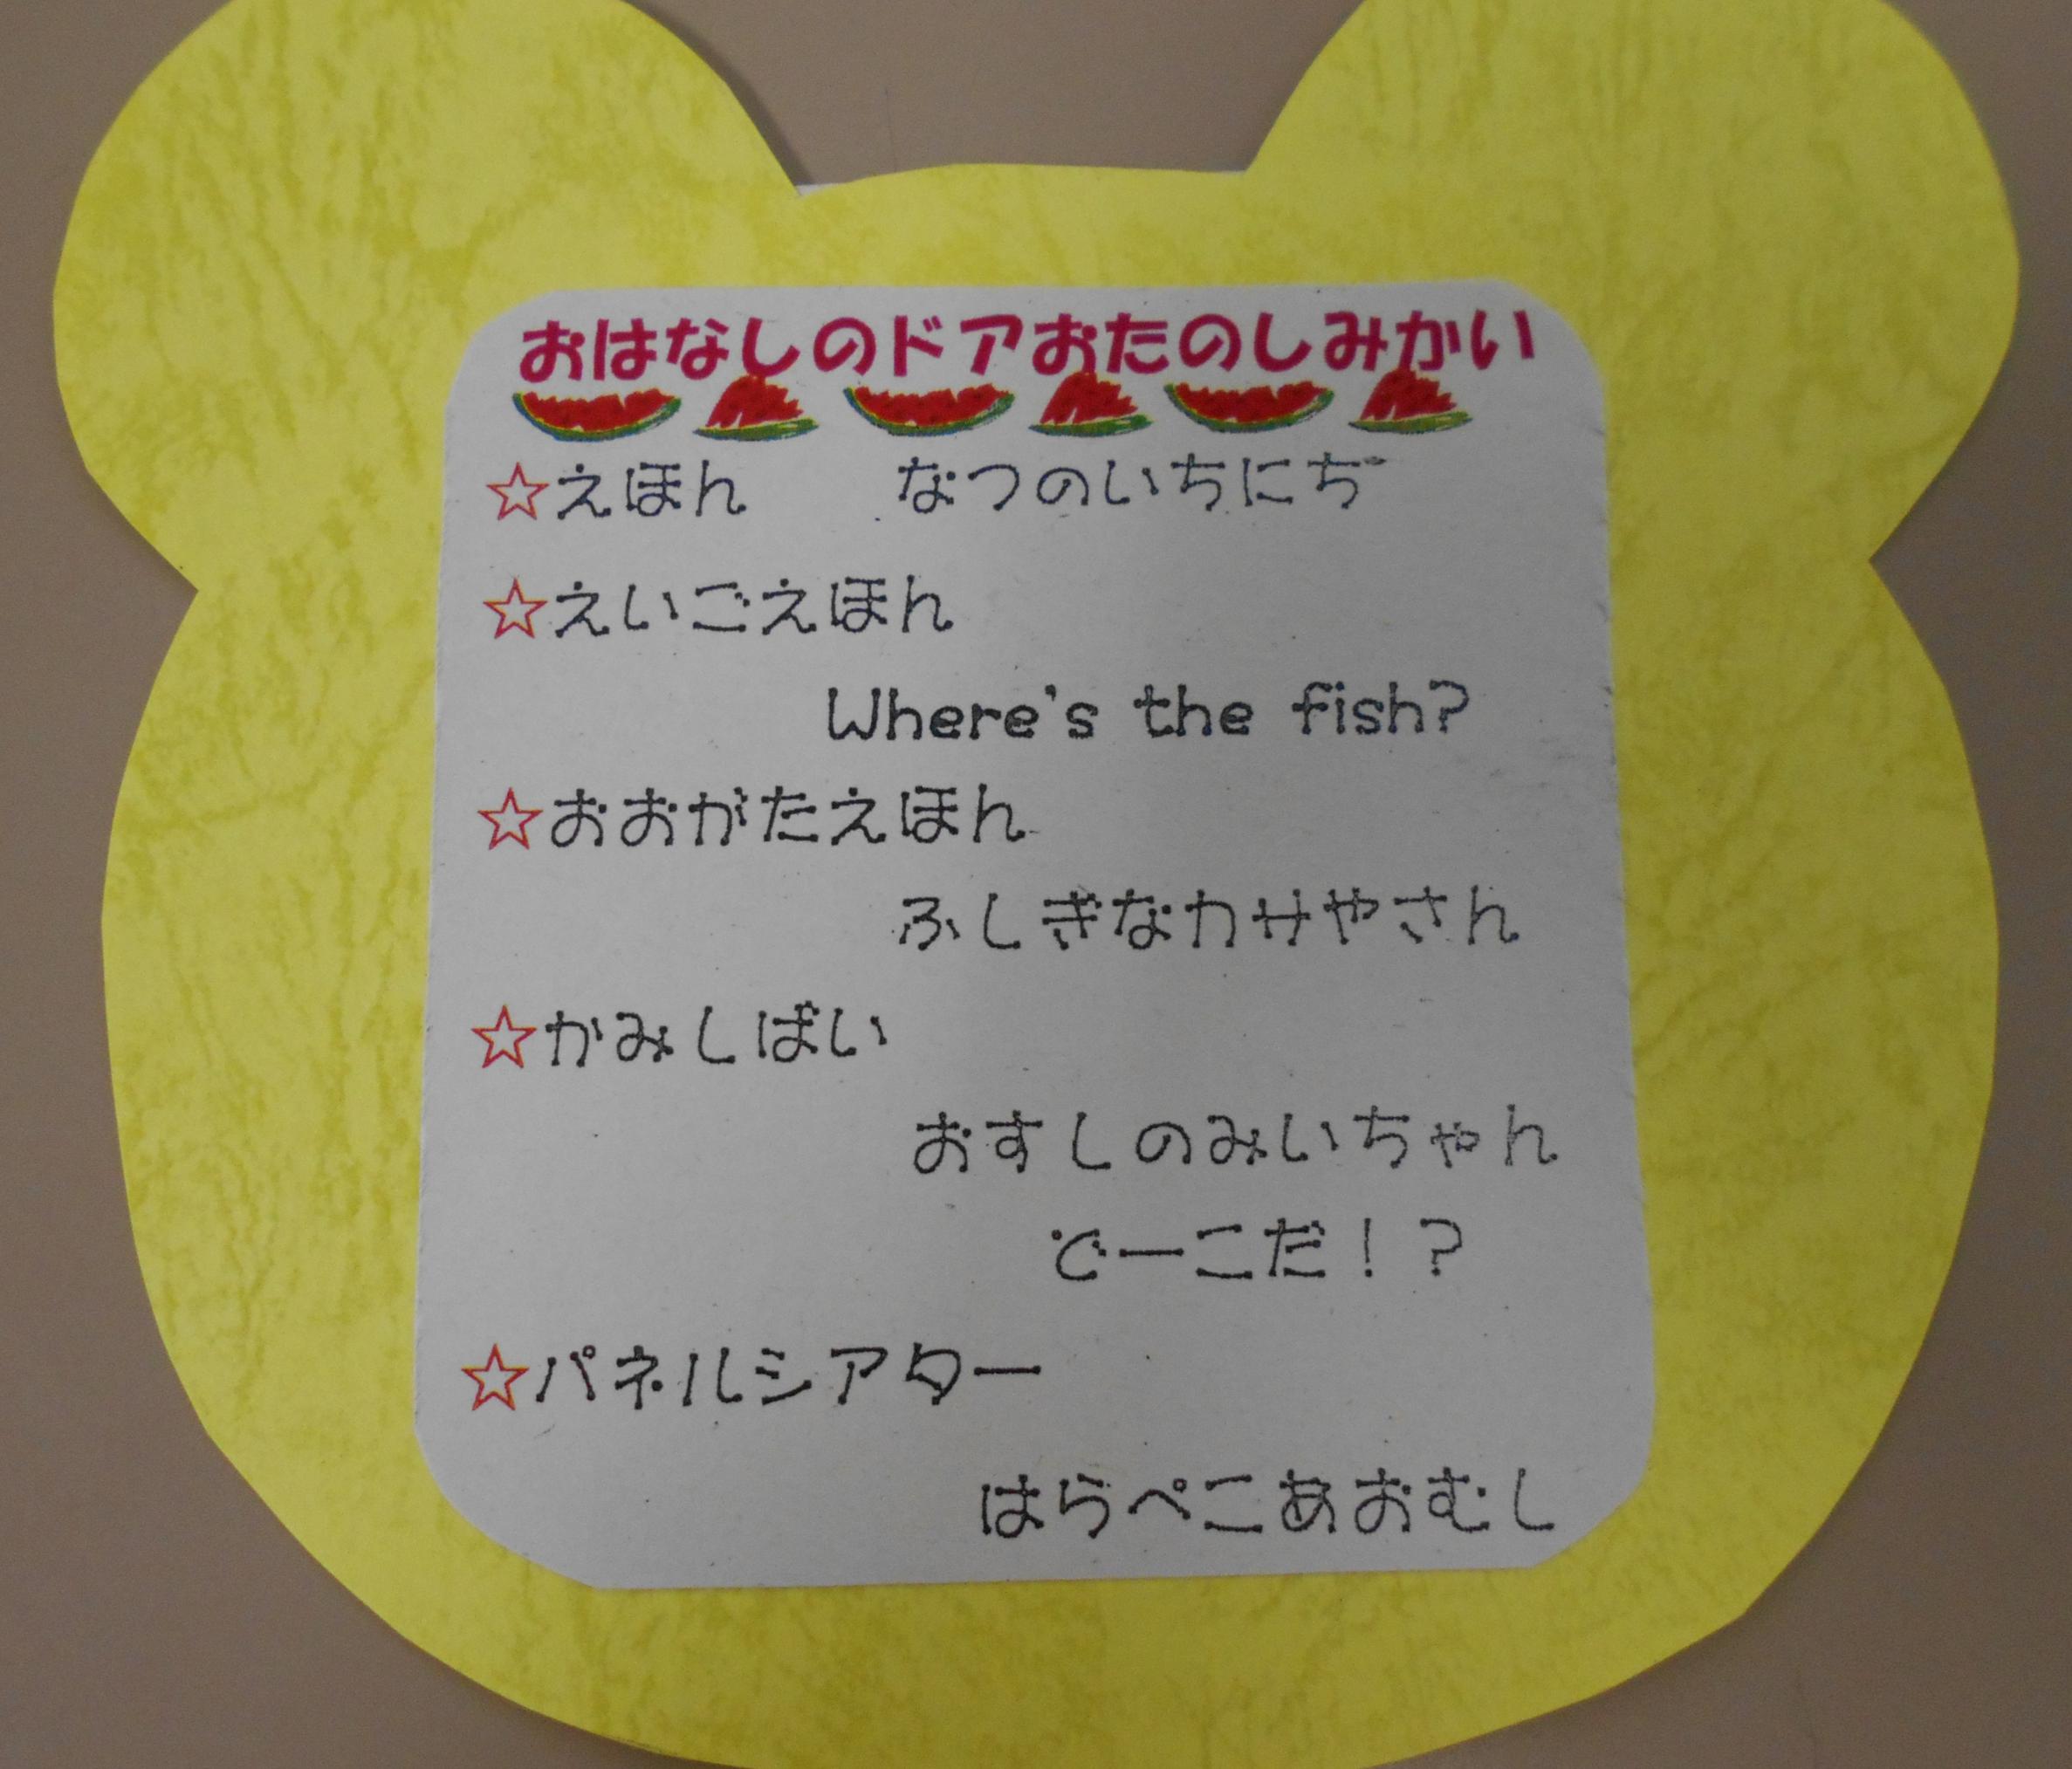 おはなしのドアおたのしみかい
☆えほん　　なつのいちにち゛
☆えいごえほん
Where's the fish?
☆おおがたえほん
ふしぎなカサやさん
☆かみしばい
おすしのみいちゃん
どーこだ！？
☆パネルシアター
はらぺこあおむし